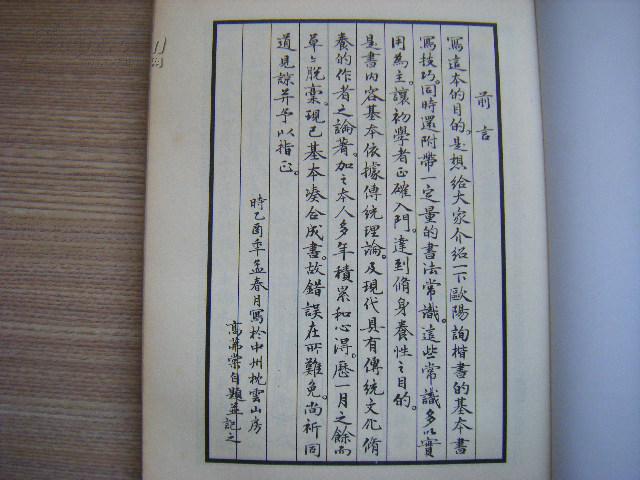 前言
寫這本的目的。是想給大家介紹一下歐陽詢楷書的基本書
寫技巧。同時還附帶一定量的書法常識。這些常識多以實
用為主。讓初學者正確入門。達到脩身養性之目的。
是書内容基本依據傳統理論。及現代具有傳統文化脩
養的作者之論著。加之本人多年積累和心得。歷一月之餘而
草草脫稾。現已基本凑合成書。故錯誤在所難免。尚祈同
道見諒并予以指正。
時乙酉年孟春月寫於中州枕雲山房
高 棠自題並記之